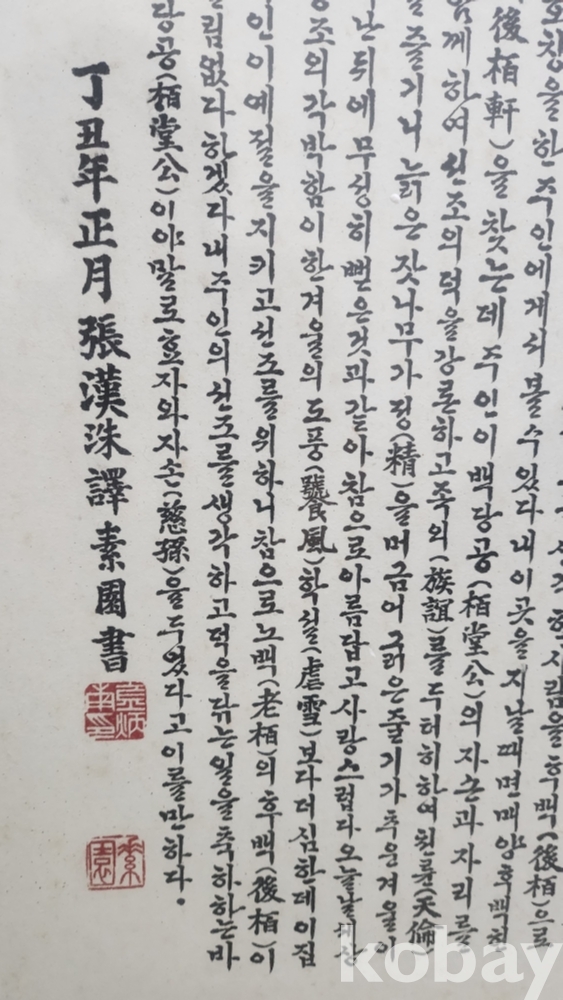 생각한사람을후백(後栢)으로
호칭을한주인에게서볼수있다내이곳을지날때면매양후백헌
(後栢軒)을찾는데주인이백당공(栢堂公)의자손과자리를
함께하여선조의덕을강론하고족의(族誼)를두터히하여천륜(天倫)
을즐기니늙은잣나무가정(精)을머금어굵은줄기가추운겨울이
난뒤에무성히뻗은것과같아참으로아름답고사랑스럽다오늘날세상
조의각박함이한겨울의도풍(饕風)학설(虐雪)보다더심한데이집
인이예절을지키고선조를위하니참으로노백(老栢)의후백(後栢)이
림없다하겠다내주인의선조를생각하고덕을닦는일을축하하는바
당공(栢堂公)이야말로효자와자손(慈孫)을두었다고이를만하다.
丁丑年正月張漢洙譯素園書
素園
kobay